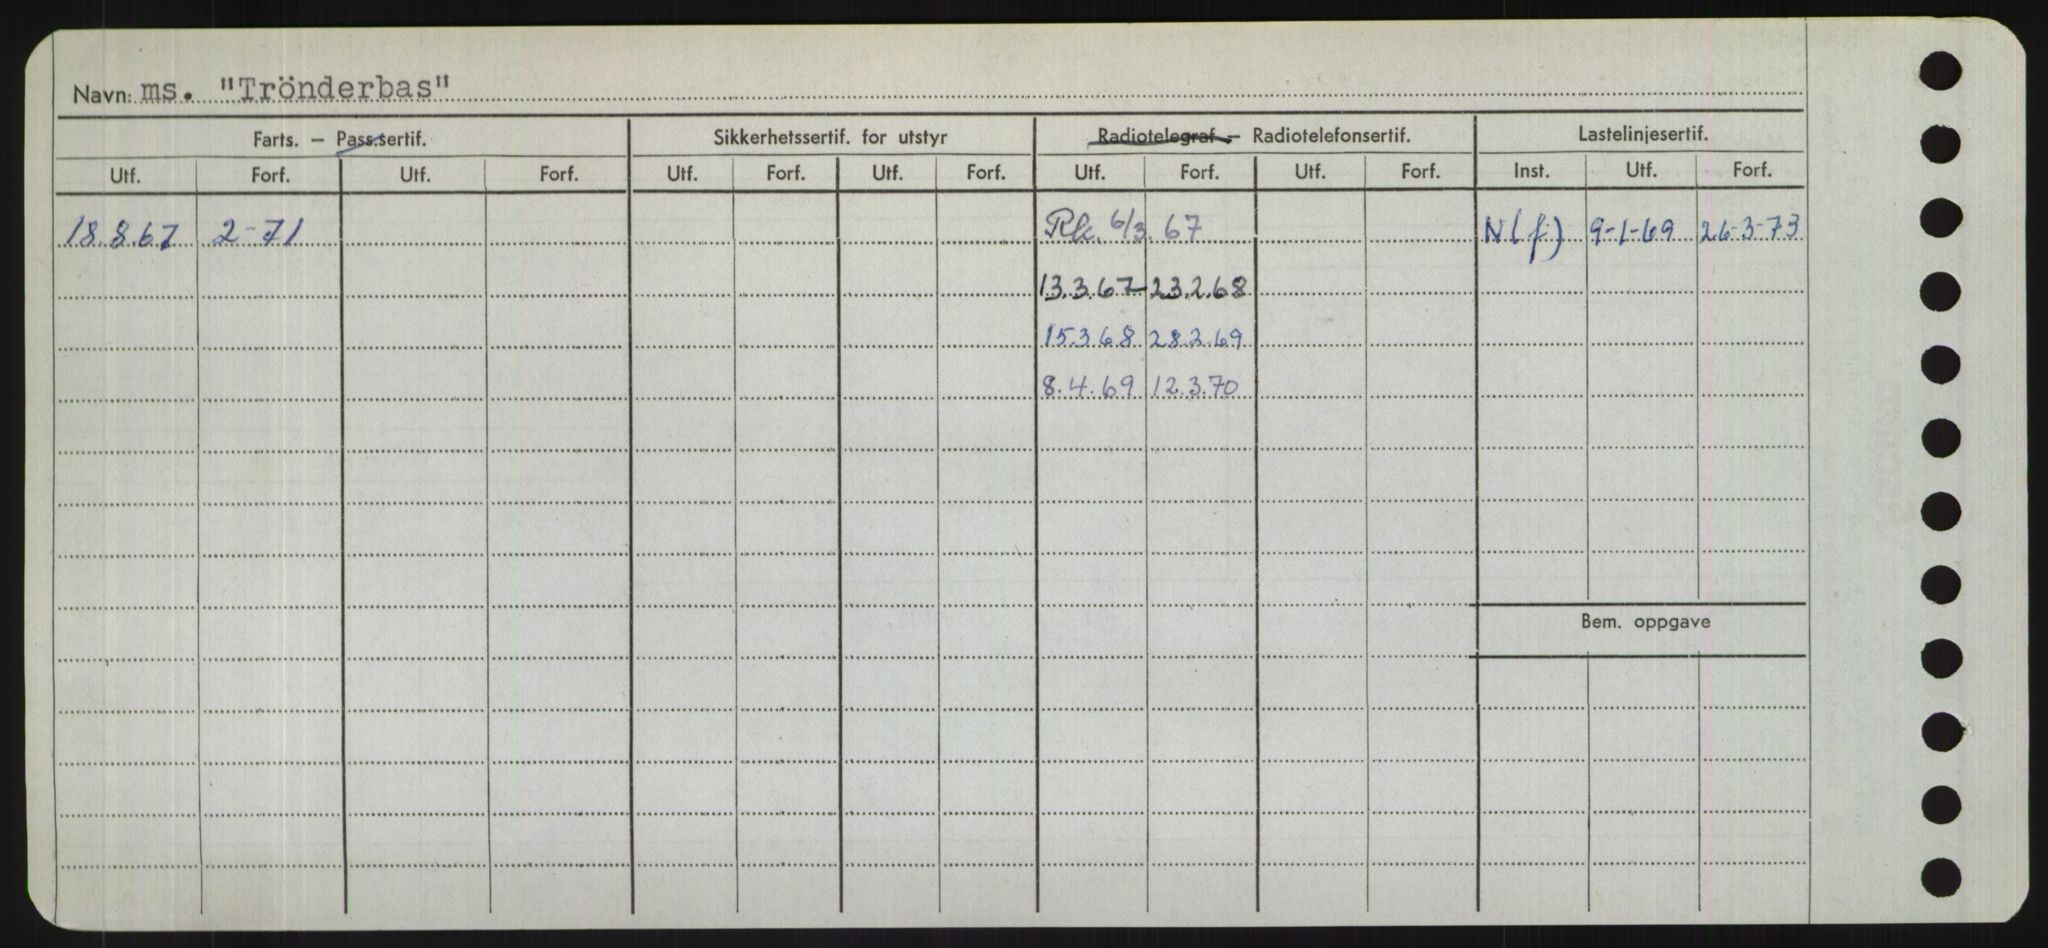 Navn: ms. "Trönderbas"
Farts. — Pass.sertif. Sikkerhetssertif. for utstyr Radiotelegraf — Radiotelefonsertif. Lastelinjesertif.
Utf. Forf. Utf. Forf. Utf. Forf. Utf. Forf. Utf. Forf. Utf. Forf. Inst. Utf. Forf.
18.8.67 2-71 6/3. 67 N(f) 9-1-69 26-3-73
13.3.67-23.2.68
15.3.68 28.2.69
8.4.69 12.3.70
Bem. oppgave